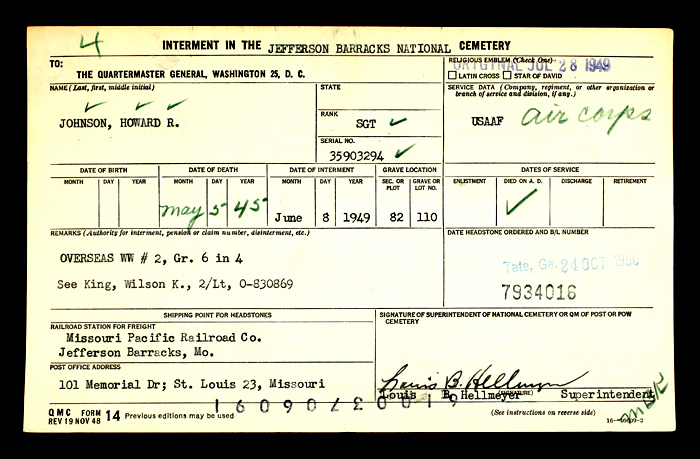 4
INTERMENT IN THE JEFFERSON BARRACKS NATIONAL CEMETERY
TO:
THE QUARTERMASTER GENERAL, WASHINGTON 25, D. C.
RELIGIOUS EMBLEM (Check One)
ORIGINAL JUL 28 1949
LATIN CROSS STAR OF DAVID
NAME (Last, first, middle initial)
JOHNSON, HOWARD R.
STATE
RANK
SGT
SERIAL NO.
35903294
SERVICE DATA (Company, regiment, or other organization or
branch of service and division, if any.)
USAAF air corps
DATE OF BIRTH DATE OF DEATH DATE OF INTERMENT GRAVE LOCATION DATES OF SERVICE
MONTH DAY YEAR MONTH DAY YEAR MONTH DAY YEAR SEC. OR PLOT GRAVE OR LOT NO. ENLISTMENT DIED ON A. D. DISCHARGE RETIREMENT
may 5 45 June 8 1949 82 110
REMARKS (Authority for interment, pension or claim number, disinterment, etc.)
OVERSEAS WW # 2, Gr. 6 in 4
See King, Wilson K., 2/Lt, O-830869
DATE HEADSTONE ORDERED AND B/L NUMBER
Tate, Ga. 24 OCT 1950
7934016
SHIPPING POINT FOR HEADSTONES
RAILROAD STATION FOR FREIGHT
Missouri Pacific Railroad Co.
Jefferson Barracks, Mo.
POST OFFICE ADDRESS
101 Memorial Dr; St. Louis 23, Missouri
SIGNATURE OF SUPERINTENDENT OF NATIONAL CEMETERY OR QM OF POST OR POW
CEMETERY
Louis B. Hellmeyer
(SIGNATURE)
Louis B. Hellmeyer Superintendent
QMC FORM 14 Previous editions may be used
REV 19 NOV 48
(See instructions on reverse side)